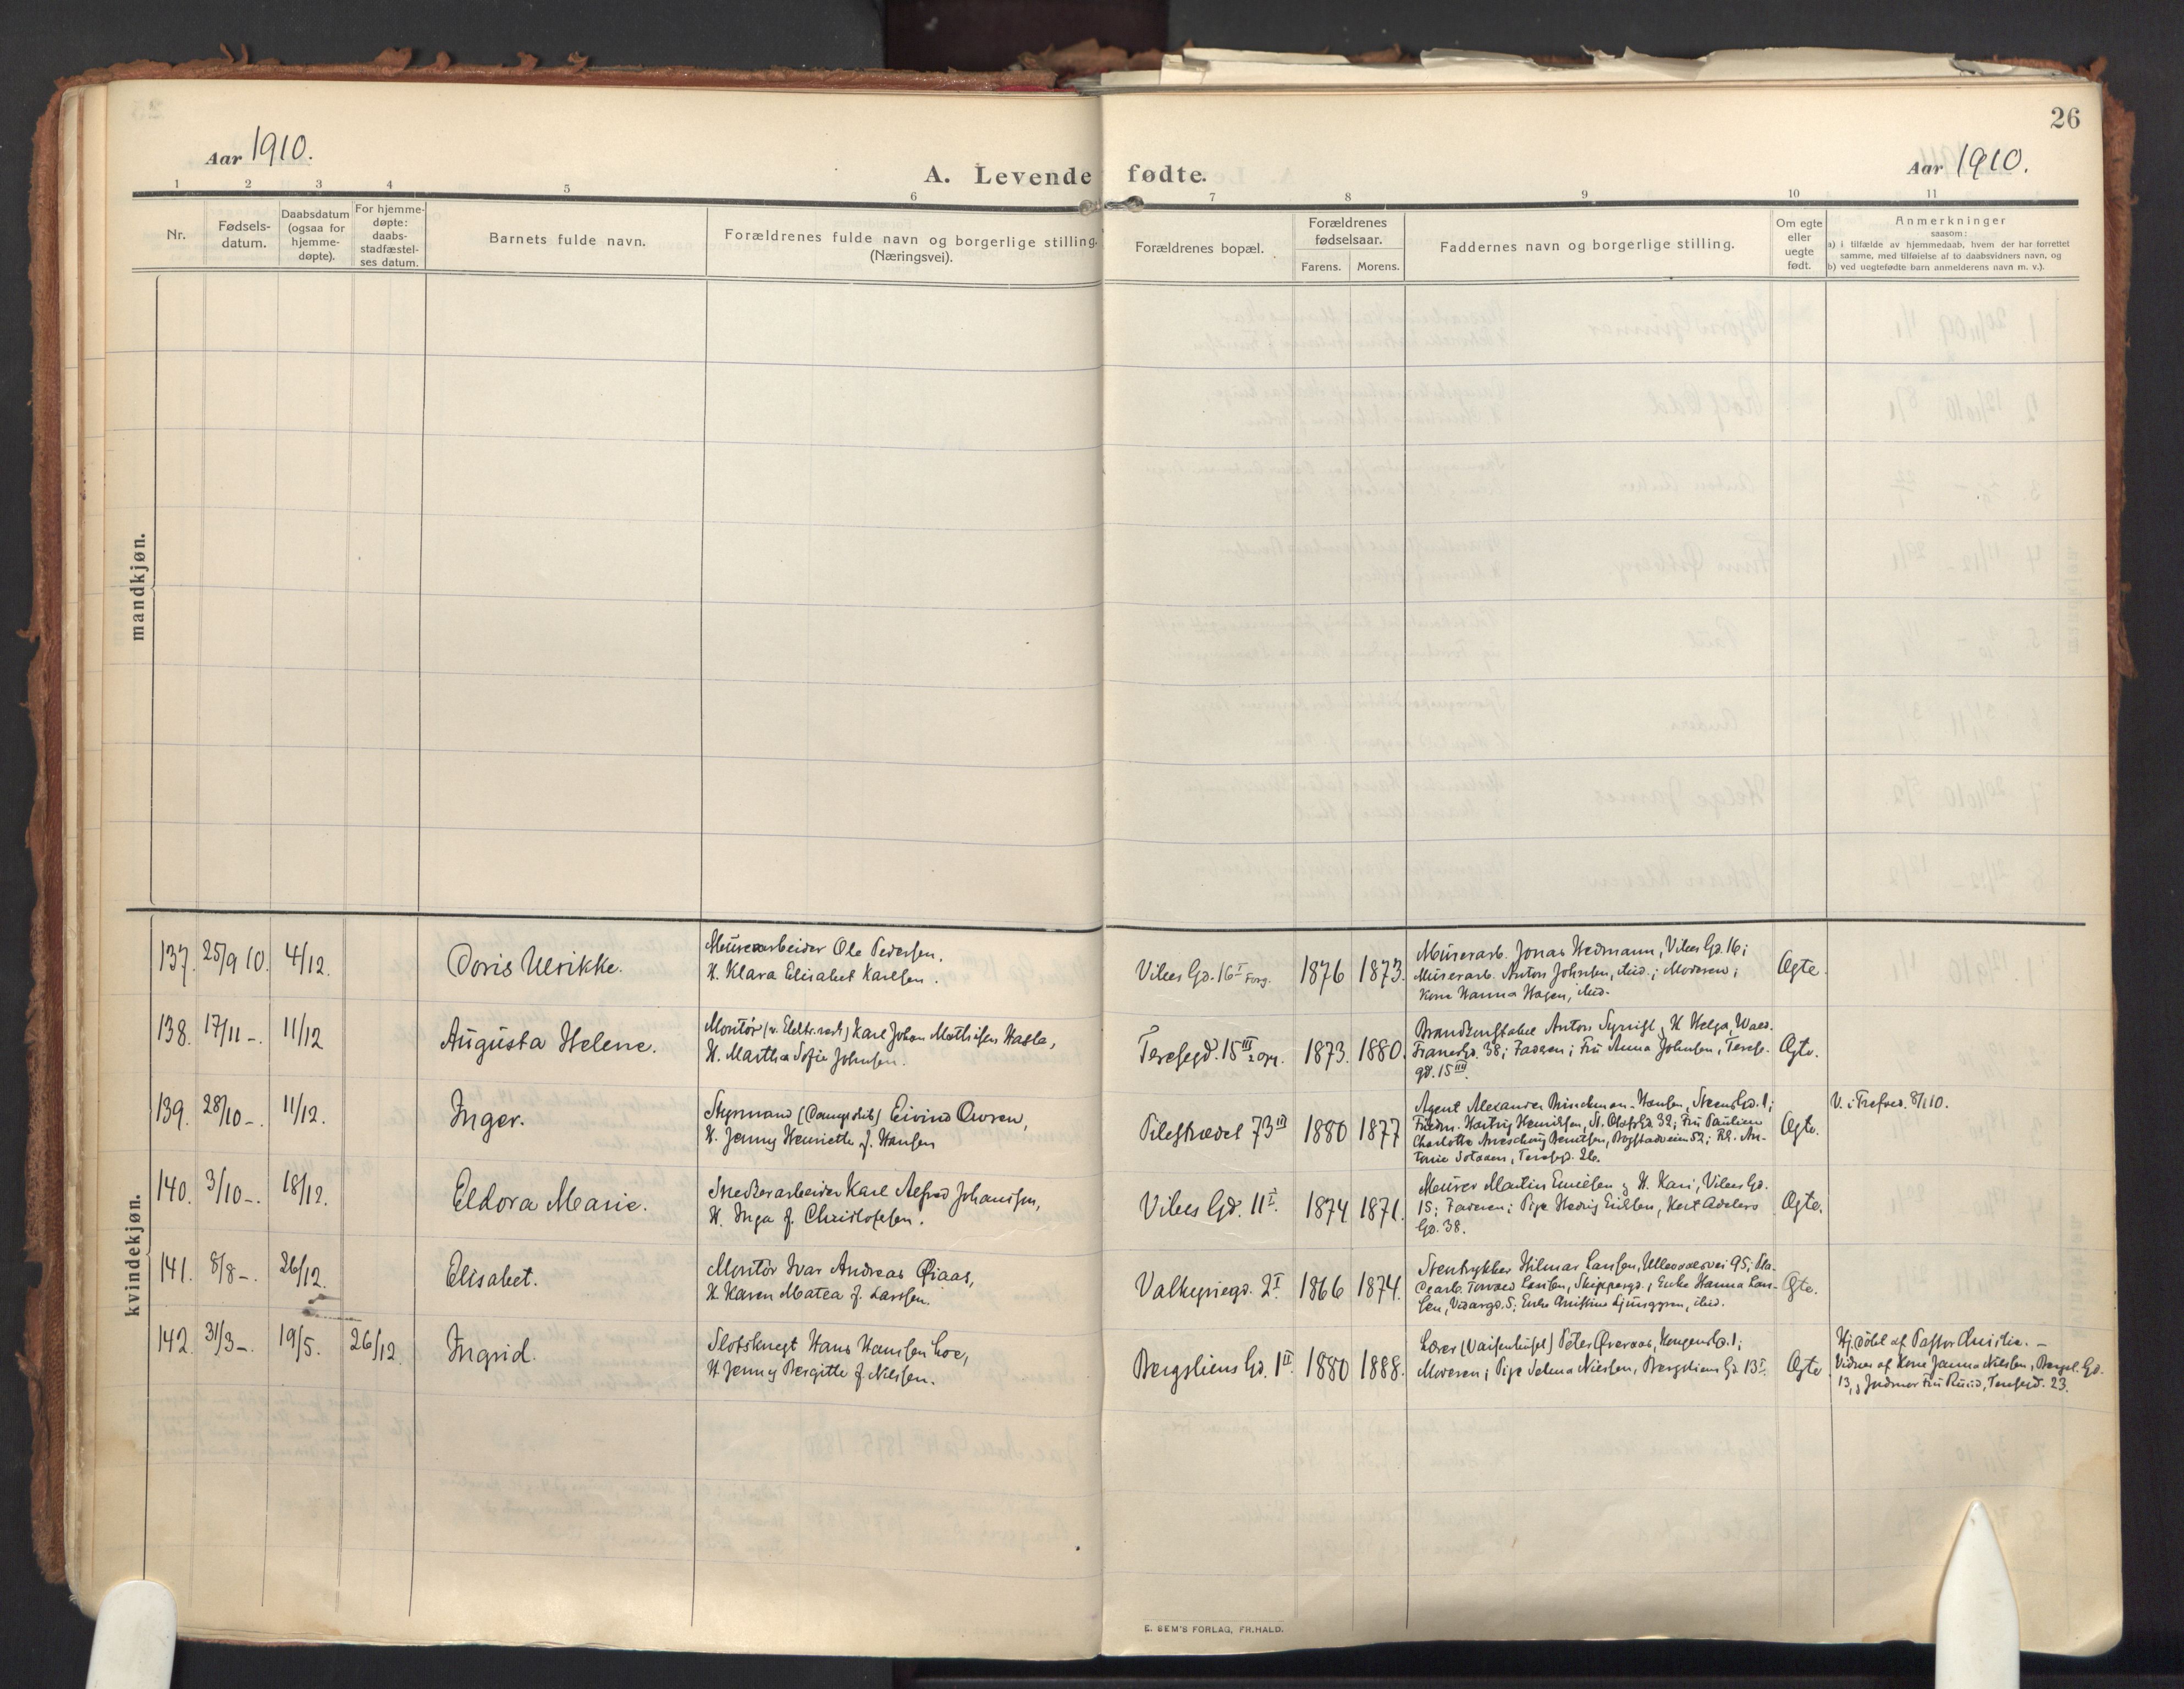 26
Aar 1910.
Aar 1910.
A. Levende fødte.
1 2 3 4 5 6 7 8 9 10 11
Nr.
Fødsels-
datum.
Daabsdatum
(ogsaa for
hjemme-
døpte).
For hjemme-
døpte:
daabs-
stadfæstel-
ses datum.
Barnets fulde navn.
Forældrenes fulde navn og borgerlige stilling.
(Næringsvei).
Forældrenes bopæl.
Forældrenes
fødselsaar.
Farens. Morens.
Faddernes navn og borgerlige stilling.
Om egte
eller
uegte
født.
Anmerkninger
saasom:
a) i tilfælde av hjemmedaab, hvem der har forrettet
samme, med tilføielse af to daabsvidners navn, og
b) ved uegtefødte barn anmelderens navn m. v.).
mandkjøn.
kvindekjøn.
137. 25/9 10. 4/12. Doris Ulrikke.
Murerarbeider Ole Pedersen.
H. Klara Elisabet Karlsen.
Vibes Gd. 16 I Forg. 1876 1873.
Murerarb. Jonas Hedmann, Vibes Gd. 16;
Murerarb. Anton Johnsen, ibid.; Moderen;
Kone Hanna Hagen, ibid.
Ægte.
138. 17/11 -. 11/12 Augusta Helene.
Montör (v. Elektr.) Karl Johan Mathisen Hasle,
H. Martha Sofie Johnsen.
Teresegd. 15 III 2 opg. 1873. 1880.
Brandkonstabel Anton & H. Helga, Wald.
Tranesgd. 38; Faderen; Fru Anna Johnsen, Terese-
gd. 15 III.
Ægte.
139. 28/10 -. 11/12. Inger.
Styrmand (Dampskib) Eivind Owren,
H. Jenny Henriette f. Hansen
Pilestrædet 73 III 1880 1877
Agent Alexander Brinchman-Hansen, Steens Gd. 1;
Hartvig Henriksen, St. Olafs Gd. 32; Fru Pauline
Charlotte Berntsen, Bogstadveien 52; Frk. An-
tonie, Teresegd. 26.
Ægte.
V. i Trefold. 8/1 10.
140. 3/10 -. 18/12. Eldora Marie.
Snedkerarbeider Karl Alfred Johansen,
H. Inga f. Christofersen.
Vibes Gd. 11 I. 1874 1871.
Murer Martin Emilsen & H. Kari, Vibes Gd.
15; Faderen; Pige Hedvig Eriksen, Kort Adelers
Gd. 38.
Ægte.
141. 8/8 -. 26/12. Elisabet.
Montör Ivar Andreas Øiaas,
H. Karen Matea f. Larssen.
Valkyriegd. 2 I. 1866 1874.
Stentrykker Hilmar Larssen, Ullevaalsvei 95;
Torvald Larssen, Skippergd.; Enke Hanna Lars-
sen, Vidarsgd. 5; Enke, ibid.
Ægte.
142. 31/3 -. 19/5. 26/12. Ingrid.
Slotsknegt Hans Hanssen Loe,
H. Jenny Bergitte f. Nilssen.
Bergsliens Gd. 1 II. 1880 1888.
Lærer (Vaisenhuset) Peter Øveraas, Kongens Gd. 1;
Moderen; Pige Selma Nielsen, Bergsliens Gd. 13 I.
Ægte
Hj. döbt af Pastor. -
Vidner af Kone Janna Nilssen, Bergsl. Gd.
13, & Jordmor Fru Ruud, Teresegd. 23.
E. SEM'S FORLAG, FR.HALD.